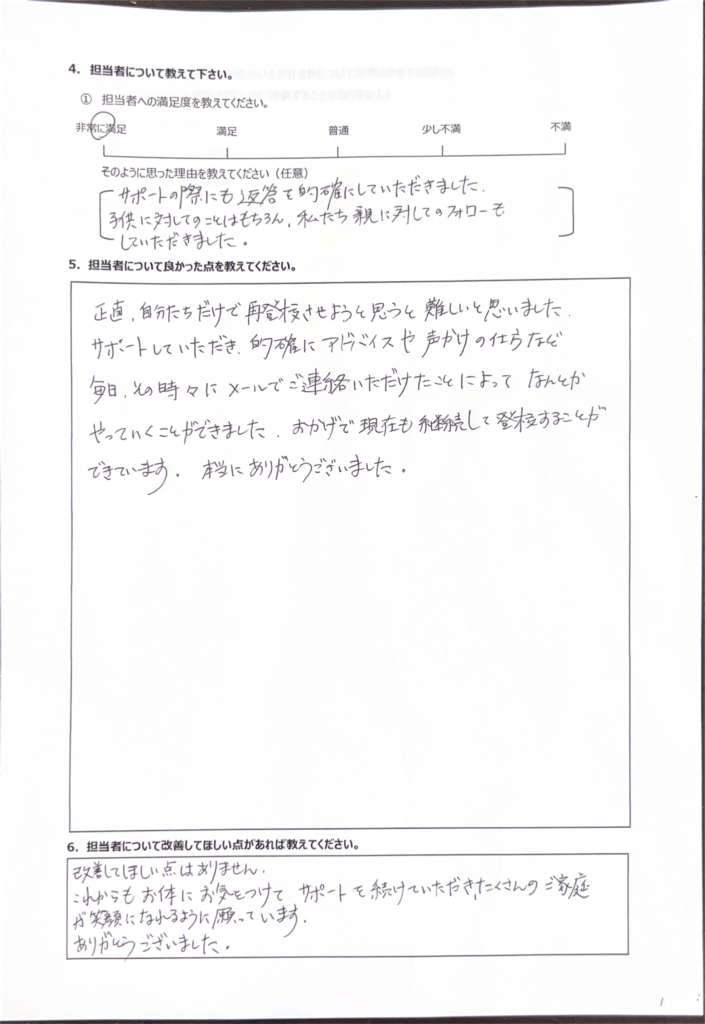 4. 担当者について教えて下さい。
① 担当者への満足度を教えてください。
非常に満足 満足 普通 少し不満 不満
そのように思った理由を教えてください（任意）
サポートの際にも返答を的確にしていただきました.
子供に対してのことはもちろん, 私たち親に対してのフォローも
していただきました。
5. 担当者について良かった点を教えてください。
正直, 自分たちだけで再登校させようと思うと難しいと思いました.
サポートしていただき, 的確にアドバイスや声かけの仕方など
毎日, その時々にメールでご連絡いただけたことによってなんとか
やっていくことができました. おかげで現在も継続して登校することが
できています. 本当にありがとうございました。
6. 担当者について改善してほしい点があれば教えてください。
改善してほしい点はありません.
これからもお体にお気をつけてサポートを続けていただき,たくさんのご家庭
が笑顔になれるように願っています.
ありがとうございました。
1